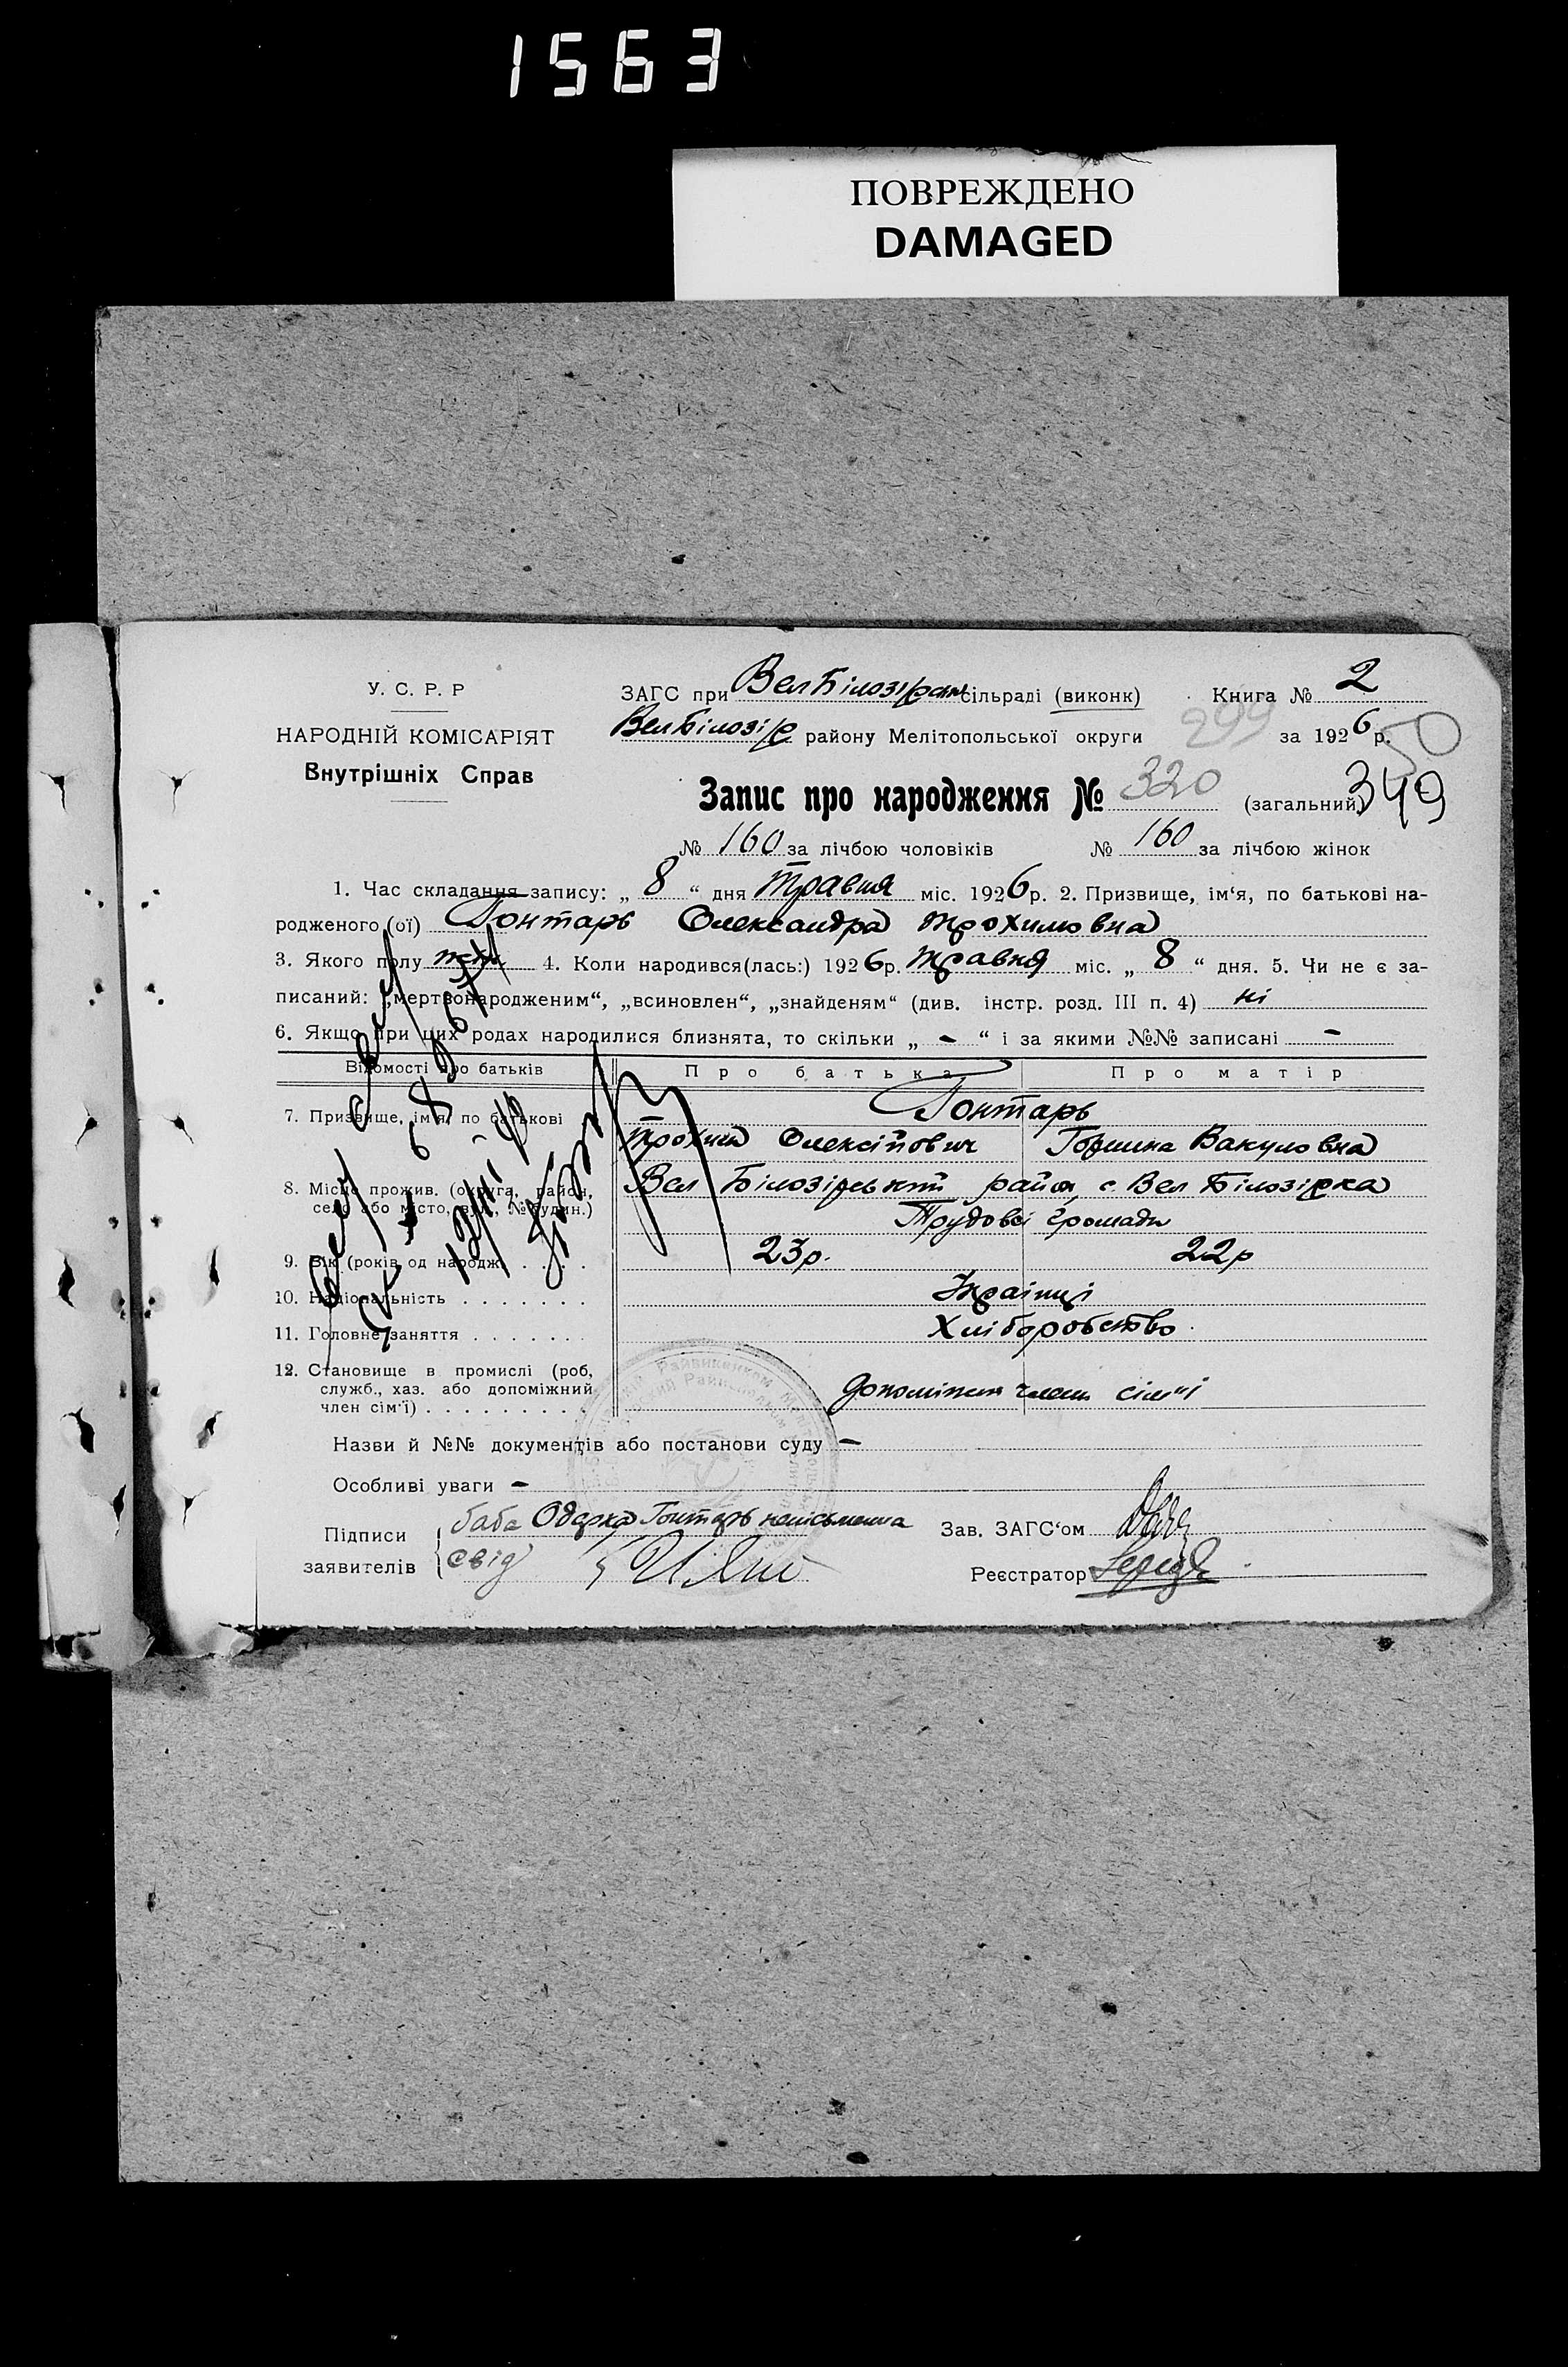 1563
ПОВРЕЖДЕНО
DAMAGED
У. С. Р. Р
НАРОДНІЙ КОМІСАРІЯТ
Внутрішніх Справ
ЗАГС при Вел Білозірськ сільраді (виконк) Книга № 2
Вел Білозір району Мелітопольської округи 299 за 1926 р. 50
Запис про народження № 320 (загальний) 349
№ 160 за лічбою чоловіків № 160 за лічбою жінок
1. Час складання запису: „ 8 “ дня Травня міс. 1926 р. 2. Призвище, ім‘я, по батькові на-
родженого (ої) Гонтарь Олександра Трохимовна
3. Якого полу жін 4. Коли народився(лась:) 1926 р. травня міс. „ 8 “ дня. 5. Чи не є за-
писаний: „мертвонародженим“, „всиновлен“, „знайденям“ (див. інстр. розд. III п. 4) ні
6. Якщо при цих родах народилися близнята, то скільки „ - “ і за якими №№ записані -
Відомості про батьків Про батька Про матір
7. Призвище, ім‘я, по батькові Гонтарь
Трохим Олексійович Вакуловна
8. Місце прожив. (округа, район, село або місто, вул., № будин.) Вел Білозірський район с. Вел Білозірка
Трудової громади
9. Вік (років од народж. . . . . 23р. 22р
10. Національність . . . . . . . Українці
11. Головне заняття . . . . . . . Хліборобство
12. Становище в промислі (роб,
служб., хаз. або допоміжний
член сім‘ї) . . . . . . . . . . допоміжни члени сім'ї
Назви й №№ документів або постанови суду -
Особливі уваги -
Підписи баба Одарка Гонтарь неписьменна Зав. ЗАГС‘ом
заявителів свід Реєстратор